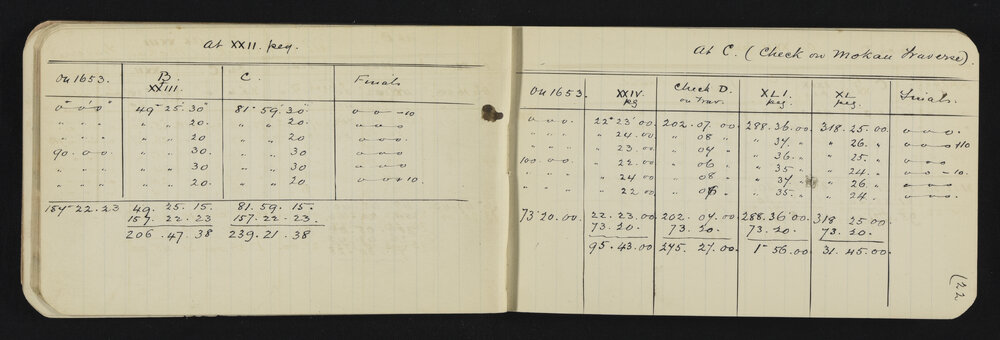 At XXII. peg.
On 1653. B. XXIII. C. Finals
0° 0' 0" 49° 25' 30" 81° 59' 30" 0 0 0 -10
" " " " " 20. " " 20. 0 0 0
" " " " " 20 " " 20 0 0 0
90. 00. 00 " " 30. " " 30 0 0 0
" " " " " 30 " " 30 0 0 0
" " " " " 20. " " 20. 0 0 0 + 10.
157. 22. 23 49. 25. 15. 81. 59. 15.
157. 22. 23 157. 22. 23.
206. 47. 38 239. 21. 38
At C. (Check on Mokau Traverse).
On 1653. XXIV. peg Check D. on Trav. XLI. peg. XL peg. Finals.
0 0 0. 22° 23' 00. 202. 07. 00 288. 36. 00 318. 25. 00 0 0 0.
" " " " 24. 00. " 08 " " 37. " " 26. " 0 0 0 +10
" " " " 23. 00 " 07 " " 36. " " 25. " 0 0 0
100. 00. 00. " 22. 00 " 06 " " 35 " " 24. " 0 0 0 - 10.
" " " " 24 00 " 08 " " 37 " " 26 " 0 0 0
" " " " 22 00 " 06 " " 35. " " 24 " 0 0 0.
73° 20. 00. 22. 23. 00 202. 07. 00 288. 36' 00 318 25 00
73. 20. 73. 20. 73. 20. 73. 20.
95. 43. 00 275. 27. 00 1° 56. 00 31. 45. 00.
(22